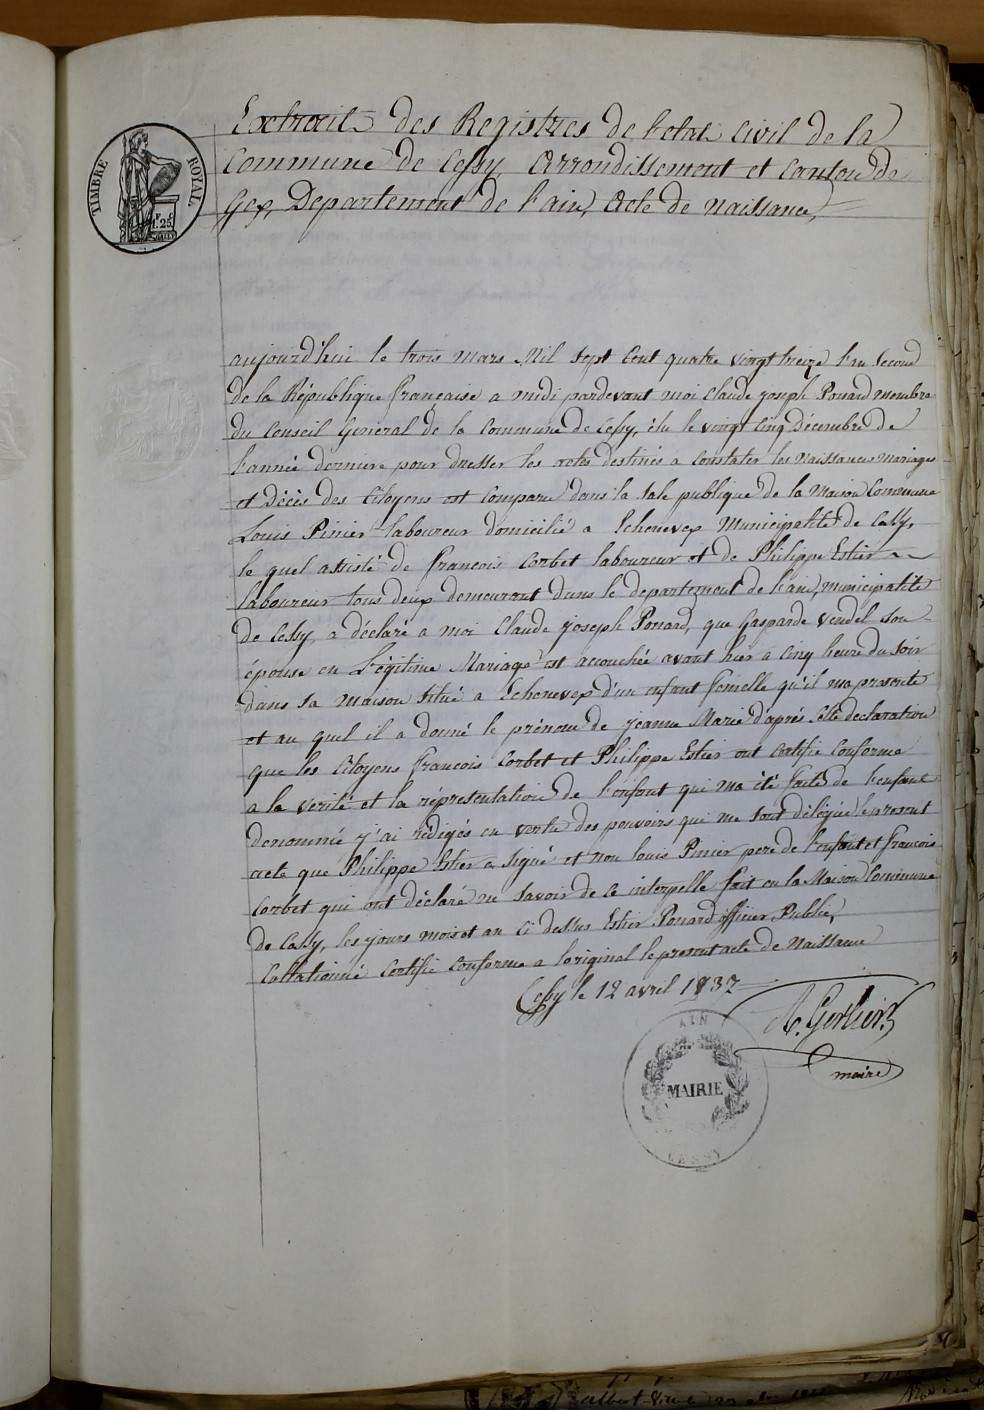 TIMBRE ROYAL
1F. 25
Extrait des Registres de l'etat Civil de la
Commune de Cessy, Arrondissement et Canton de
Gex, Departement de l'ain, Acte de Naissance,
aujourd'hui le trois mars Mil sept Cent quatre vingt treize l'an Second
de la République française a midi pardevant moi Claude joseph Ponard membre
du Conseil Général de la Commune de Cessy, élu le vingt Cinq décembre de
l'année derniere pour dresser les actes destinés a Constater les Naissances Mariages
et Décès des Citoyens est Comparu dans la sale publique de la Maison Commune
Louis Pinier laboureur domicilié a Echenevex Municipalité de Cessy,
le quel assisté de francois Corbet laboureur et de Philippe Estier
laboureur tous deux demeurant dans le departement de l'ain, municipalité
de Cessy, a déclaré a moi Claude joseph Ponard, que Gasparde Vendel son
épouse en Légitime Mariage est accouchée avant hier a Cinq heure du Soir
dans sa maison situé a Echenevex d'un enfant femelle qu'il ma presenté
et au quel il a donné le prénom de jeanne Marie d'aprés Cette declaration
que les Citoyens francois Corbet et Philippe Estier ont Certifié Conforme
a la verité et la réprésentation de l'enfant qui ma été faite de l'enfant
denommé j'ai rédigés en vertu des pouvoirs qui me sont délégué le present
acte que Philippe Estier a Signé et non louis Pinier pere de l'enfant et francois
Corbet qui ont déclaré ne savoir de ce interpellé fait en la Maison Commune
de Cessy, les jours mois et an Ci dessus Estier Ponard officier Public,
Collationné Certifié Conforme a l'original le present acte de Naissance
Cessy le 12 avril 1832
maire
AIN
MAIRIE
CESSY